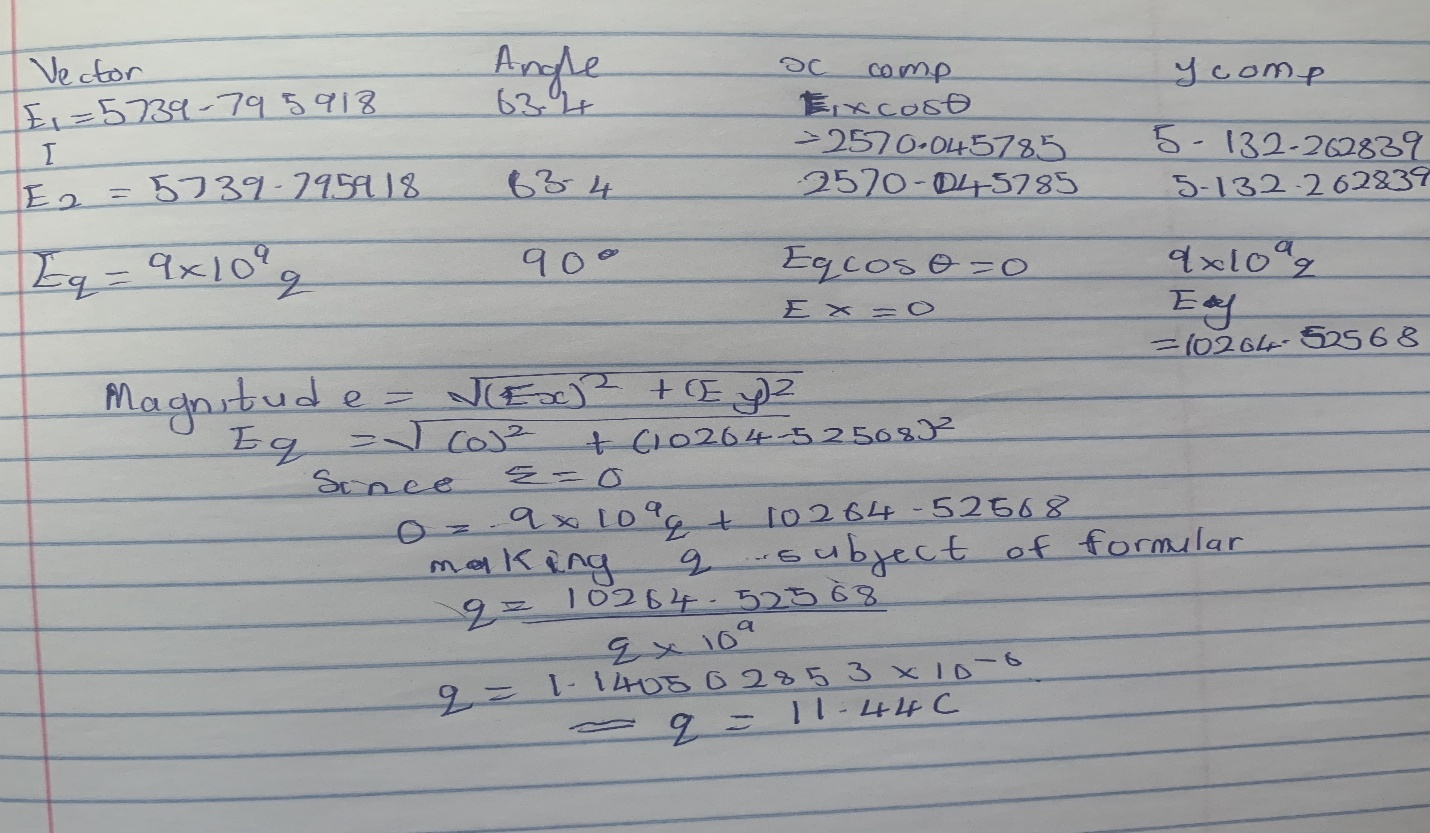 Vector Angle x comp y comp
E₁ = 5739-795918 63.4 E₁xcosθ
I =2570.045785 5-132-262839
E₂ = 5739-795918 63-4 2570-045785 5-132-262839
Eq = 9×10⁹q 90° Eqcosθ=0 9×10⁹q
Ex=0 Ey
=10264-52568
Magnitude = √(Ex)² + (Ey)²
Eq = √(0)² + (10264-52568)²
Since Σ=0
0 = 9×10⁹q + 10264-52568
making q subject of formular
q = 10264.52568
9×10⁹
q = 1-140502853×10⁻⁶
= q = 11-44C